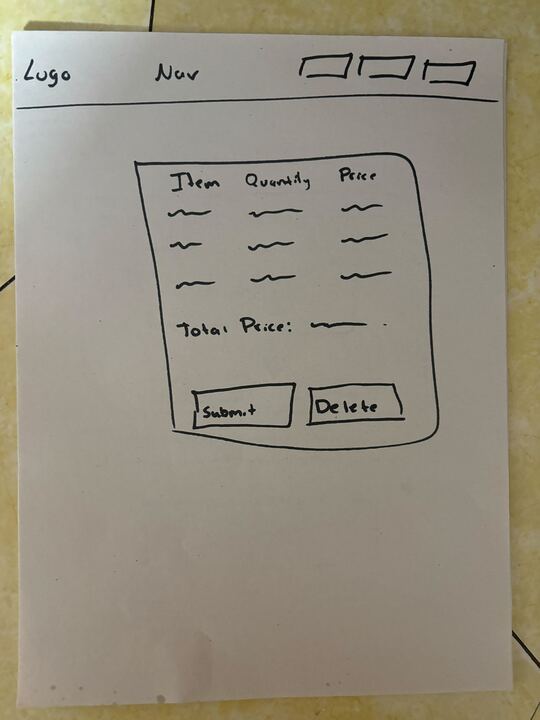 Logo Nav
Item Quantity Price
Total Price:
Submit Delete